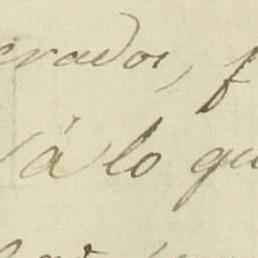 erados, f
á lo qu